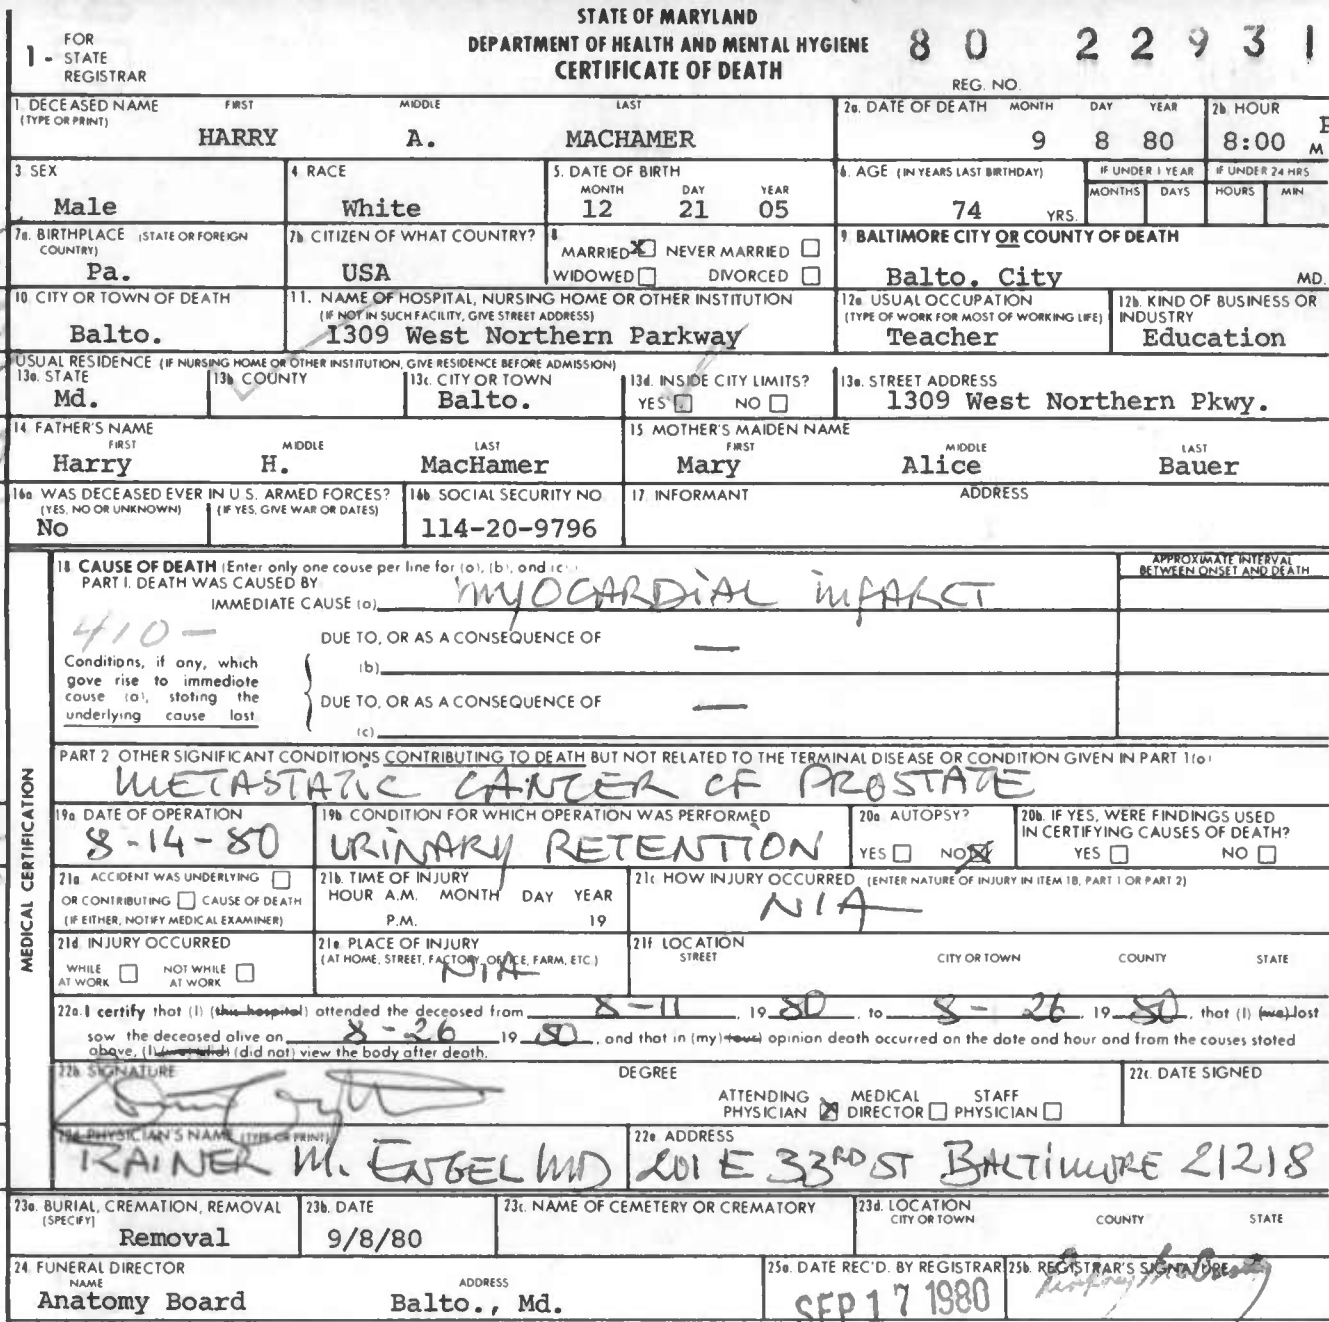 STATE OF MARYLAND
DEPARTMENT OF HEALTH AND MENTAL HYGIENE
CERTIFICATE OF DEATH
1 - FOR STATE REGISTRAR
80 22931
REG. NO.
1. DECEASED NAME (TYPE OR PRINT) FIRST MIDDLE LAST
HARRY A. MACHAMER
2a. DATE OF DEATH MONTH DAY YEAR
9 8 80
2b. HOUR
8:00 M
3. SEX
Male
4. RACE
White
5. DATE OF BIRTH
MONTH DAY YEAR
12 21 05
6. AGE (IN YEARS LAST BIRTHDAY)
74 YRS.
IF UNDER 1 YEAR
MONTHS DAYS
IF UNDER 24 HRS
HOURS MIN
7a. BIRTHPLACE (STATE OR FOREIGN COUNTRY)
Pa.
7b. CITIZEN OF WHAT COUNTRY?
USA
8
MARRIED X NEVER MARRIED
WIDOWED DIVORCED
9. BALTIMORE CITY OR COUNTY OF DEATH
Balto. City MD.
10. CITY OR TOWN OF DEATH
Balto.
11. NAME OF HOSPITAL, NURSING HOME OR OTHER INSTITUTION
(IF NOT IN SUCH FACILITY, GIVE STREET ADDRESS)
1309 West Northern Parkway
12a. USUAL OCCUPATION
(TYPE OF WORK FOR MOST OF WORKING LIFE)
Teacher
12b. KIND OF BUSINESS OR INDUSTRY
Education
USUAL RESIDENCE (IF NURSING HOME OR OTHER INSTITUTION, GIVE RESIDENCE BEFORE ADMISSION)
13a. STATE
Md.
13b. COUNTY
13c. CITY OR TOWN
Balto.
13d. INSIDE CITY LIMITS?
YES NO
13e. STREET ADDRESS
1309 West Northern Pkwy.
14. FATHER'S NAME
FIRST MIDDLE LAST
Harry H. MacHamer
15. MOTHER'S MAIDEN NAME
FIRST MIDDLE LAST
Mary Alice Bauer
16a. WAS DECEASED EVER IN U.S. ARMED FORCES?
(YES, NO OR UNKNOWN) (IF YES, GIVE WAR OR DATES)
No
16b. SOCIAL SECURITY NO.
114-20-9796
17. INFORMANT ADDRESS
MEDICAL CERTIFICATION
18. CAUSE OF DEATH (Enter only one cause per line for (a), (b), and (c).)
APPROXIMATE INTERVAL BETWEEN ONSET AND DEATH
PART I. DEATH WAS CAUSED BY
IMMEDIATE CAUSE (a) MYOCARDIAL INFARCT
410 -
DUE TO, OR AS A CONSEQUENCE OF —
(b)
Conditions, if any, which gave rise to immediate cause (a), stating the underlying cause last
DUE TO, OR AS A CONSEQUENCE OF —
(c)
PART 2. OTHER SIGNIFICANT CONDITIONS CONTRIBUTING TO DEATH BUT NOT RELATED TO THE TERMINAL DISEASE OR CONDITION GIVEN IN PART 1(a)
METASTATIC CANCER OF PROSTATE
19a. DATE OF OPERATION
8-14-80
19b. CONDITION FOR WHICH OPERATION WAS PERFORMED
URINARY RETENTION
20a. AUTOPSY?
YES NO X
20b. IF YES, WERE FINDINGS USED IN CERTIFYING CAUSES OF DEATH?
YES NO
21a. ACCIDENT WAS UNDERLYING
OR CONTRIBUTING CAUSE OF DEATH
(IF EITHER, NOTIFY MEDICAL EXAMINER)
21b. TIME OF INJURY
HOUR A.M. MONTH DAY YEAR
P.M. 19
21c. HOW INJURY OCCURRED (ENTER NATURE OF INJURY IN ITEM 18, PART 1 OR PART 2)
N/A
21d. INJURY OCCURRED
WHILE AT WORK NOT WHILE AT WORK
21e. PLACE OF INJURY
(AT HOME, STREET, FACTORY, OFFICE, FARM, ETC.)
N/A
21f. LOCATION
STREET CITY OR TOWN COUNTY STATE
22a. I certify that (I) (this hospital) attended the deceased from 8-11, 1980, to 8-26, 1980, that (I) (we) last
saw the deceased alive on 8-26 1980, and that in (my) (our) opinion death occurred on the date and hour and from the causes stated
above, (I) (we did) (did not) view the body after death.
22b. SIGNATURE
DEGREE
ATTENDING PHYSICIAN X MEDICAL DIRECTOR STAFF PHYSICIAN
22c. DATE SIGNED
22d. PHYSICIAN'S NAME (TYPE OR PRINT)
RAINER M. ENGEL MD
22e. ADDRESS
201 E 33RD ST BALTIMORE 21218
23a. BURIAL, CREMATION, REMOVAL (SPECIFY)
Removal
23b. DATE
9/8/80
23c. NAME OF CEMETERY OR CREMATORY
23d. LOCATION
CITY OR TOWN COUNTY STATE
24. FUNERAL DIRECTOR
NAME ADDRESS
Anatomy Board Balto., Md.
25a. DATE REC'D. BY REGISTRAR
SEP 17 1980
25b. REGISTRAR'S SIGNATURE